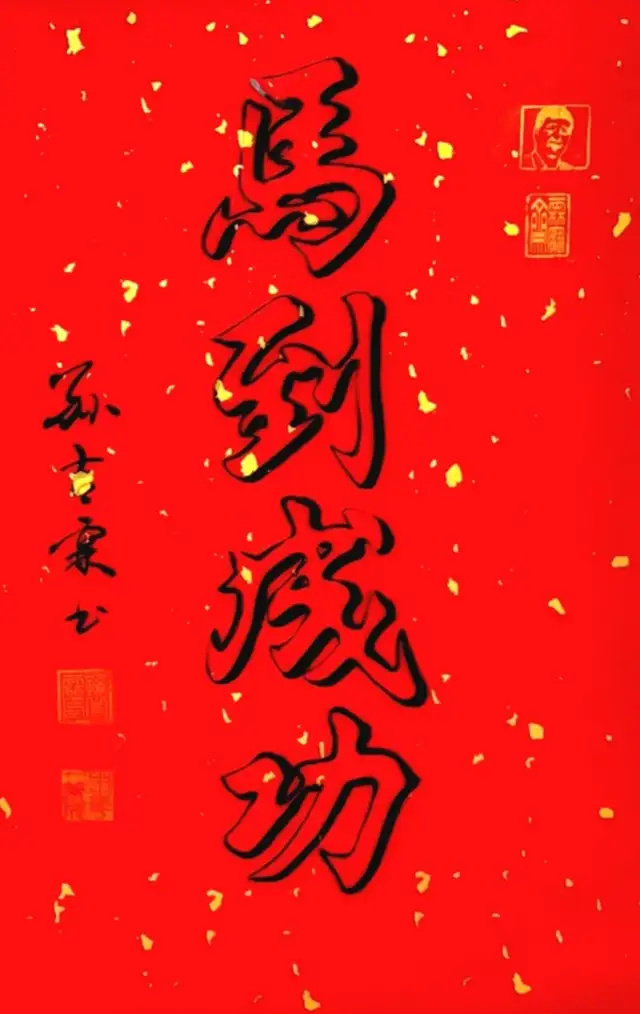 馬到成功
孙吉霖书